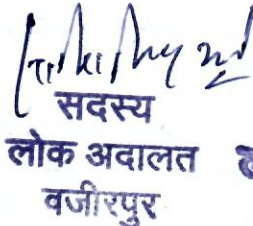 सदस्य
लोक अदालत
वजीरपुर